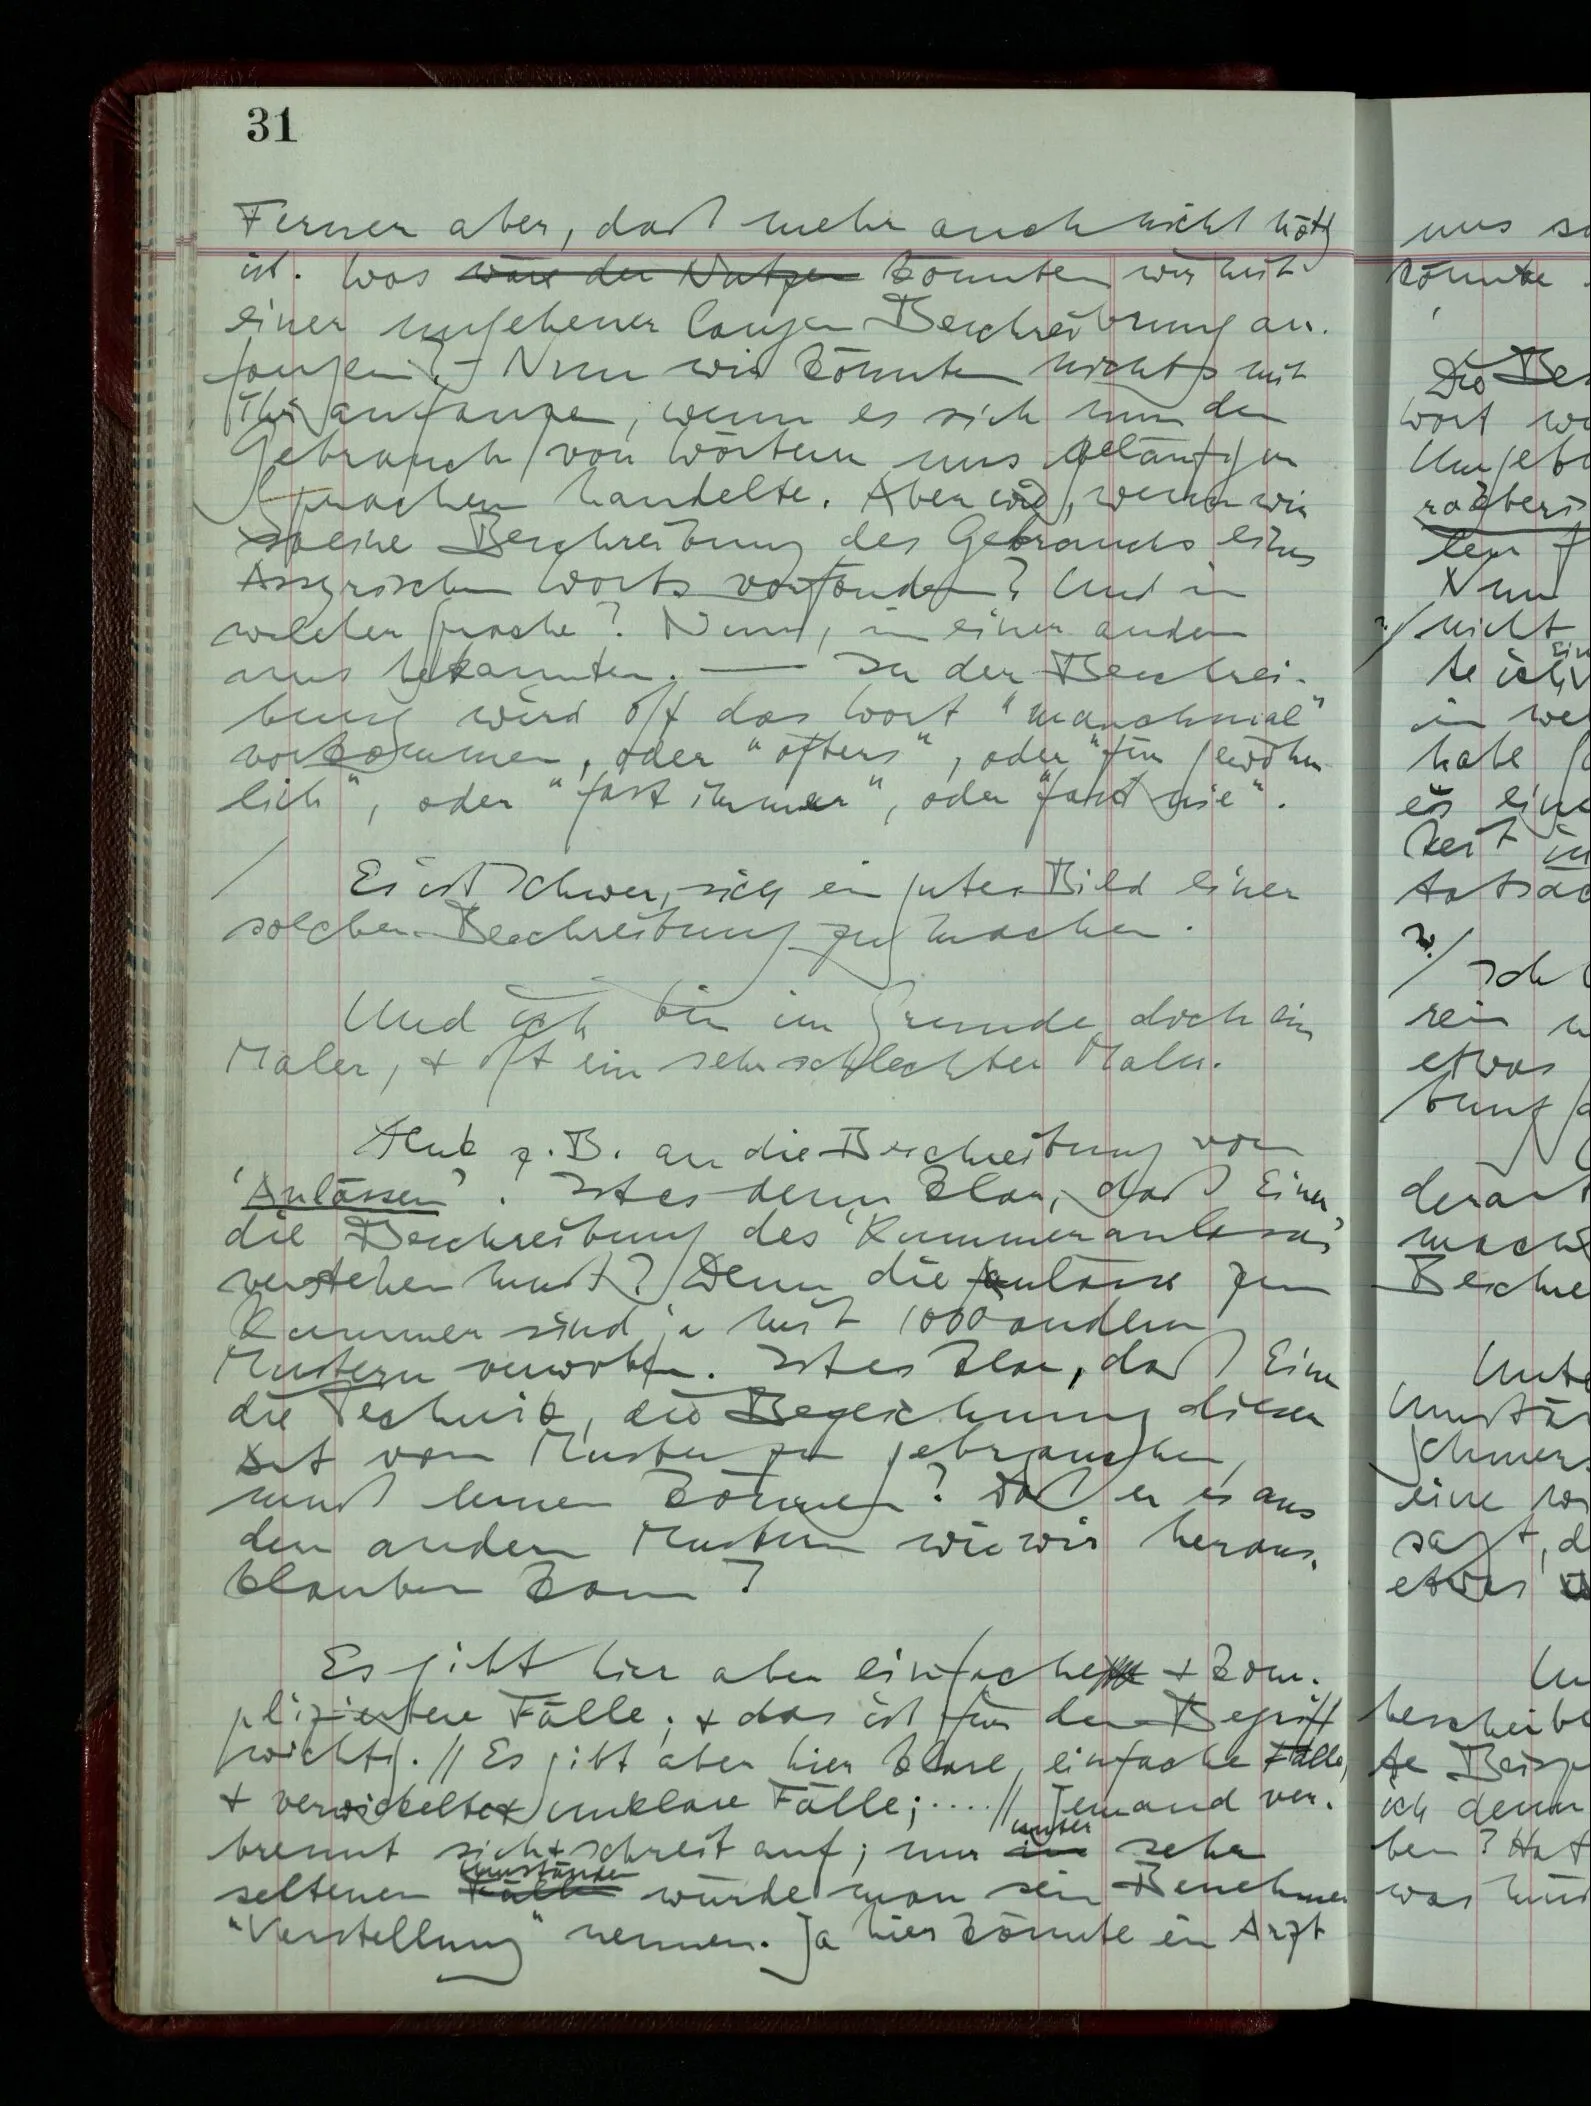 31
Ferner aber, daß mehr auch nicht nötig
ist. Was wäre der Nutzen könnten wir mit
einer ungeheuer langen Beschreibung an-
fangen? – Nun wir könnten nichts mit
ihr anfangen, wenn es sich um den
Gebrauch von Wörtern uns geläufiger
Sprachen handelte. Aber wie, wenn wir
so eine Beschreibung des Gebrauchs eines
Assyrischen Worts vorfänden? Und in
welcher Sprache? Nun, in einer andern
uns bekannten. — In der Beschrei-
bung wird oft das Wort "manchmal"
vorkommen, oder "öfters", oder "für gewöhn-
lich", oder "fast immer", oder "fast nie".
/ Es ist schwer, sich ein gutes Bild einer
solchen Beschreibung zu machen.
Und ich bin im Grunde doch ein
Maler, & oft ein sehr schlechter Maler.
Denk z.B. an die Beschreibung von
'Anlässen'. Ist es denn klar, daß Einer
die Beschreibung des 'Kummeranlasses'
verstehen muß? Denn die Anlässe zum
Kummer sind ja mit 1000 andern
Mustern verwoben. Ist es klar, daß Einer
die Technik, die Bezeichnung dieser
Art von Muster zu gebrauchen,
muß lernen können? Daß er es aus
den andern Mustern wie wir heraus-
klauben kann?
Es gibt hier aber einfache & kom-
pliziertere Fälle; & das ist für den Begriff
wichtig. // Es gibt aber hier klare, einfache Fälle,
& verwickelte unklare Fälle; .... // Jemand ver-
brennt sich & schreit auf; nur in unter sehr
seltenen Fällen Umständen würde man sein Benehmen
"Verstellung" nennen. Ja hier könnte ein Arzt
uns
könnte
Die
Wort
Nun
nicht
te ich
in
habe
es
keit in
?/ Ich
rein
etwas
eine
etwas
ich denn
ben? Hat
was